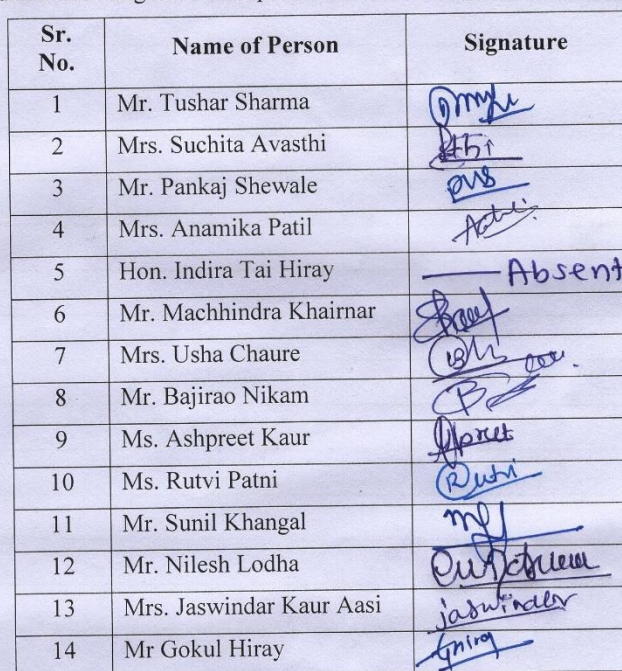 Sr. No. Name of Person Signature
1 Mr. Tushar Sharma
2 Mrs. Suchita Avasthi
3 Mr. Pankaj Shewale
4 Mrs. Anamika Patil
5 Hon. Indira Tai Hiray Absent
6 Mr. Machhindra Khairnar
7 Mrs. Usha Chaure
8 Mr. Bajirao Nikam
9 Ms. Ashpreet Kaur
10 Ms. Rutvi Patni Rutvi
11 Mr. Sunil Khangal
12 Mr. Nilesh Lodha
13 Mrs. Jaswindar Kaur Aasi jaswinder
14 Mr Gokul Hiray